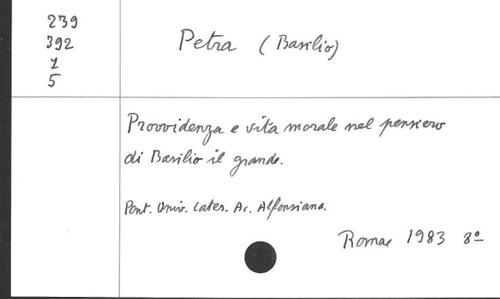 239
392
1
5
Petra (Basilio)
Provvidenza e vita morale nel pensiero
di Basilio il grande.
Pont. Univ. Later. Ac. Alfonsiana.
Romae 1983 8º